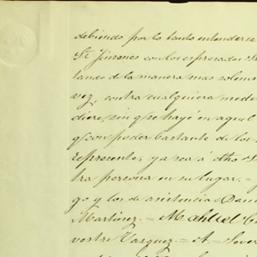 debiendo por lo tanto entenderse
Sr. Jimenes con los espresados S
tando de la manera mas solem
vez, contra cualquiera medi
diere, sin que haya en aquel
q. con poder bastante de los
representen ya sea á dho. S
tra persona en su lugar.
go y los de asistencia Dani
Martinez. = Manuel
vestre Vasquez. = A. = Seve